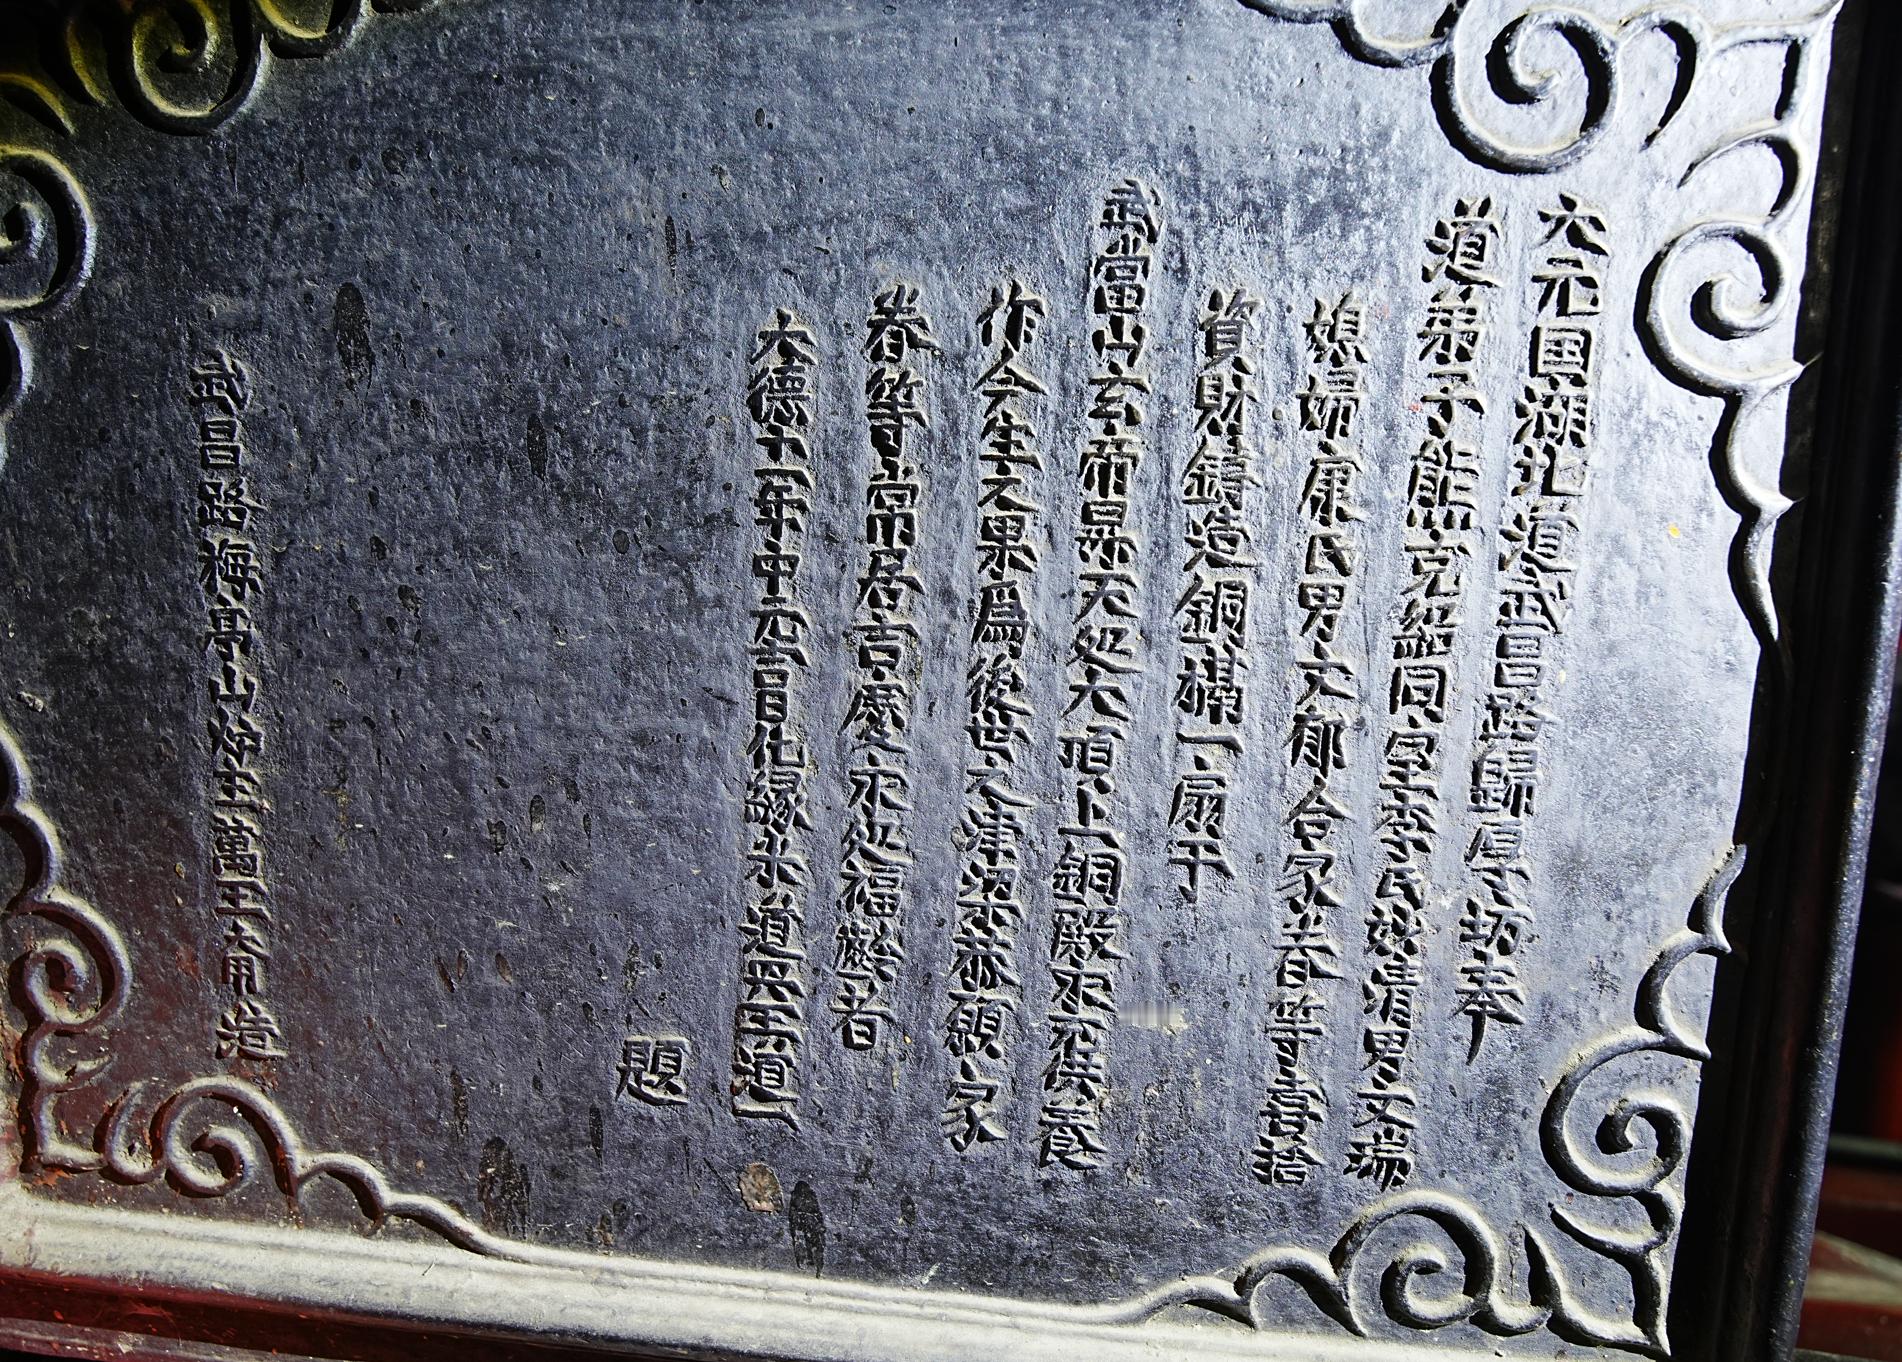 大元国湖北道武昌路歸厚坊奉
道弟子熊克紹同室李氏妙清男文瑞
媳婦康氏男大郁合家眷等喜捨
資財鑄造銅槅一扇于
武當山玄帝昇天处大頂上銅殿永充供養
作今生之果爲後世之津梁恭願家
眷等常居吉慶永处福齡者
大德十一年中元吉日化縁米道興王道一
題
武昌路梅亭山炉主萬王大用造